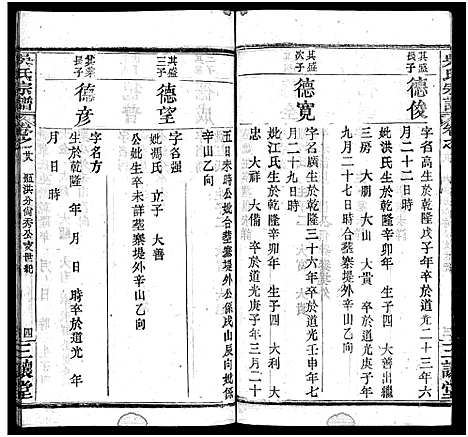 吳氏宗譜
其盛長子
德俊
字名高生於乾隆戊子年卒於道光二十三年六
月二十二日時
妣洪氏生於乾隆辛卯年 生子四 大善出繼
三房 大朋 大山 大賞 卒於道光庚子年
九月二十七日時合墓寨堤外辛山乙向
其盛次子
德寬
字名廣生於乾隆三十六年卒於道光壬申年七
月二十九日時
妣江氏生於乾隆辛卯年 生子四 大利 大
忠 大祥 大備 卒於道光庚子年三月二十
五日未時公妣合墓寨堤外公係戌山辰向妣係
辛山乙向
其盛三子
德望
字名强
妣馮氏 立子 大善
公妣生卒未詳墓寨堤外辛山乙向
其業長子
德彦
字名方
生於乾隆 年 月 日 時卒於道光 年
月 日 時
吳氏宗譜
四
三讓堂